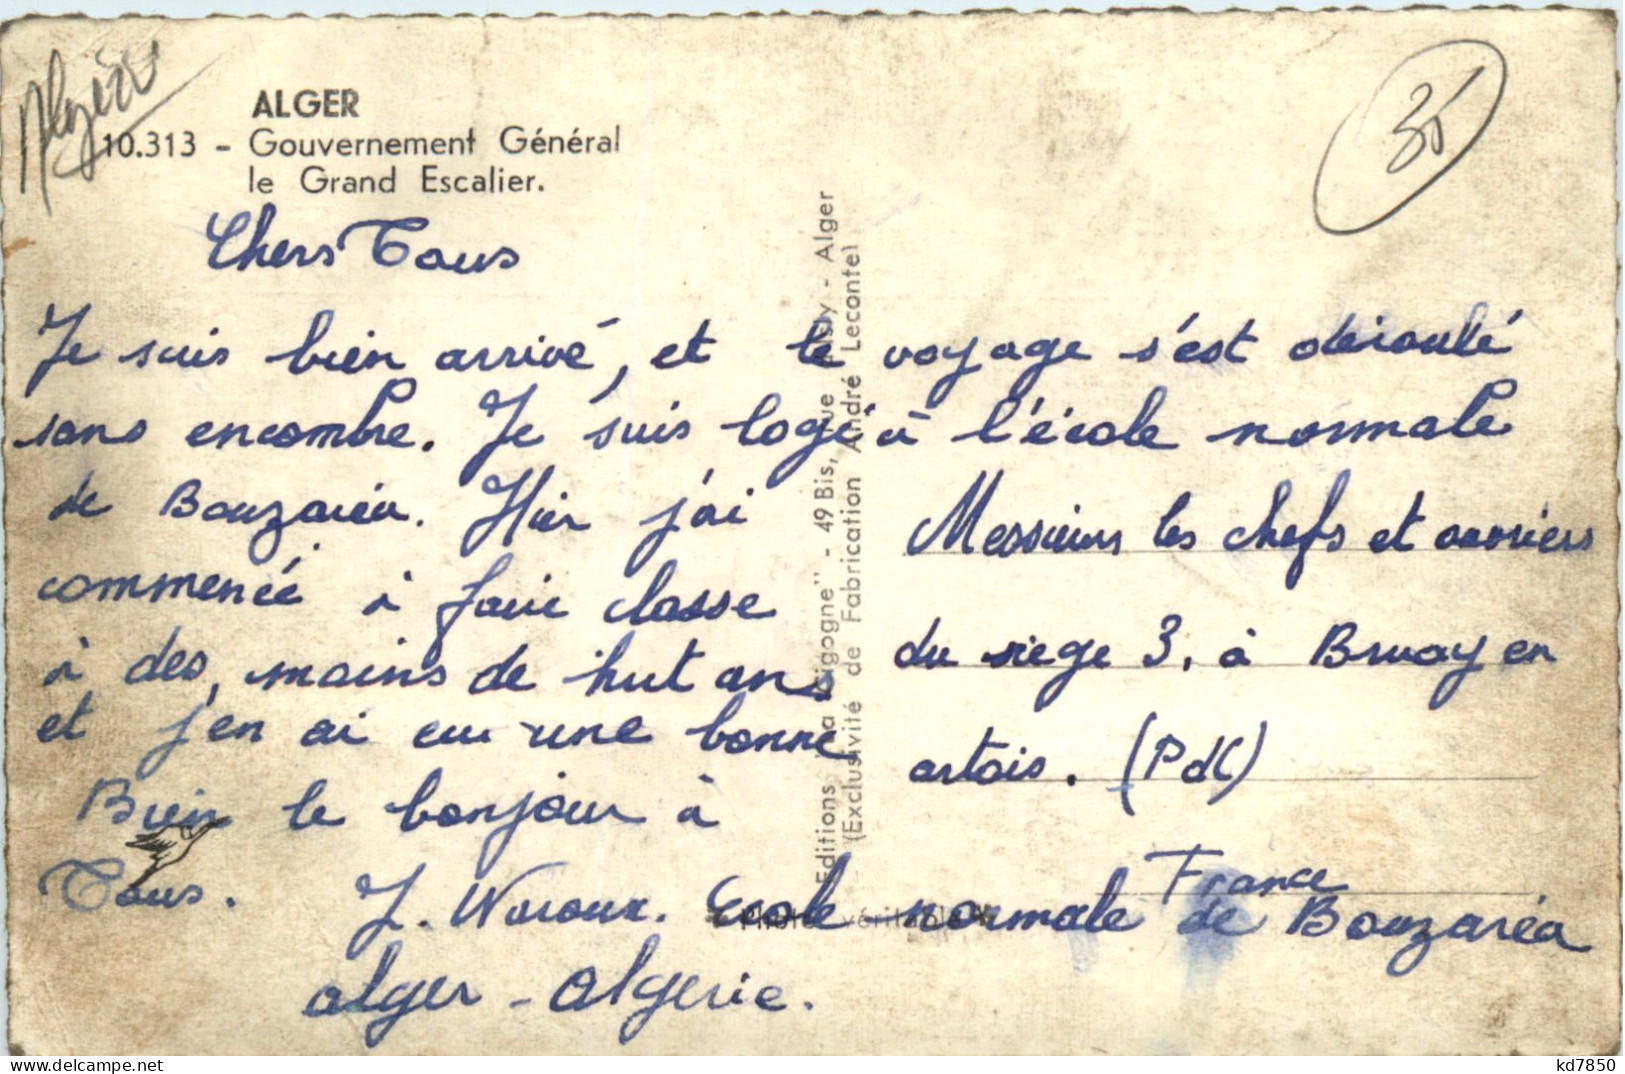 Algérie
35
ALGER
10.313 - Gouvernement Général
le Grand Escalier.
Chers Tous
Je suis bien arrivé, et le voyage s'est déroulé
sans encombre. Je suis logé à l'école normale
de Bouzaréa. Hier j'ai
commencé à faire classe
à des moins de huit ans
et j'en ai eu une bonne
Bien le bonjour à
Tous.
J. Waroux. Ecole normale de Bouzaréa
Alger - Algérie.
Messieurs les chefs et ouvriers
du siège 3. à Bruay en
artois. (PdC)
France
Editions "La Cigogne" - 49 Bis, Rue d'Isly - Alger
(Exclusivité de Fabrication André Leconte)
Photo véritable
kd7850